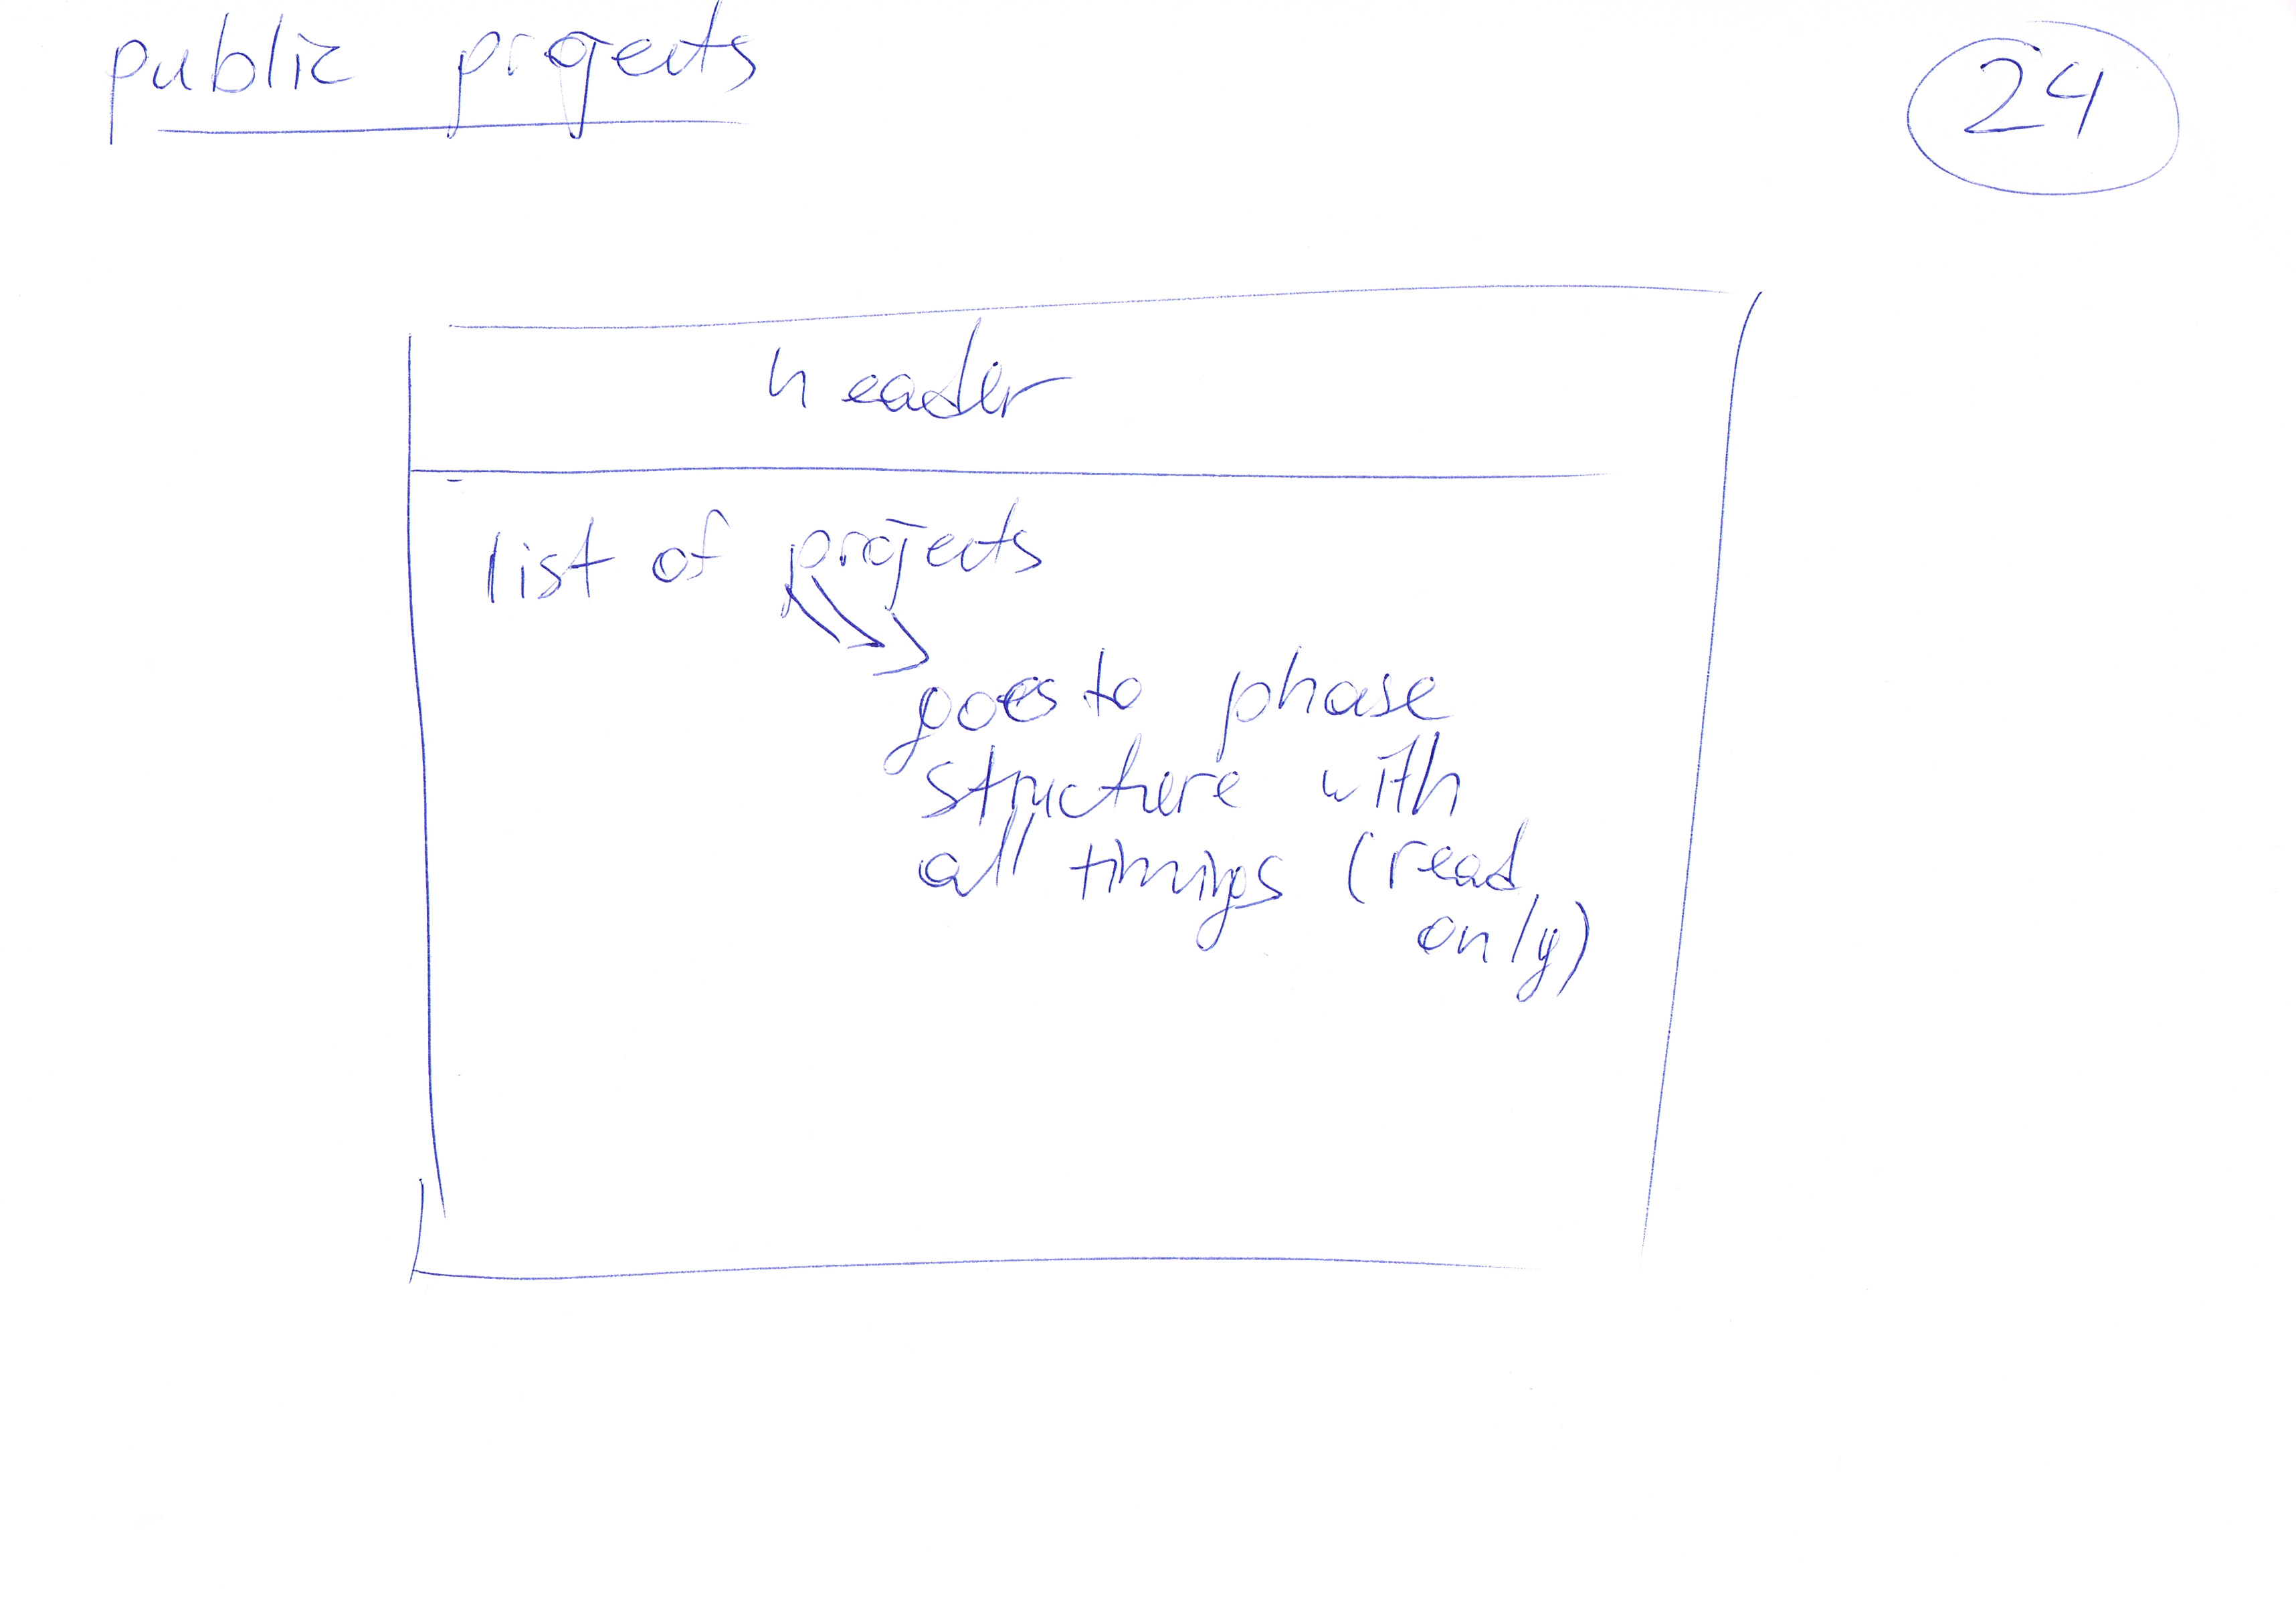 public projects
24
header
list of projects
goes to phase
structure with
all timings (read
only)